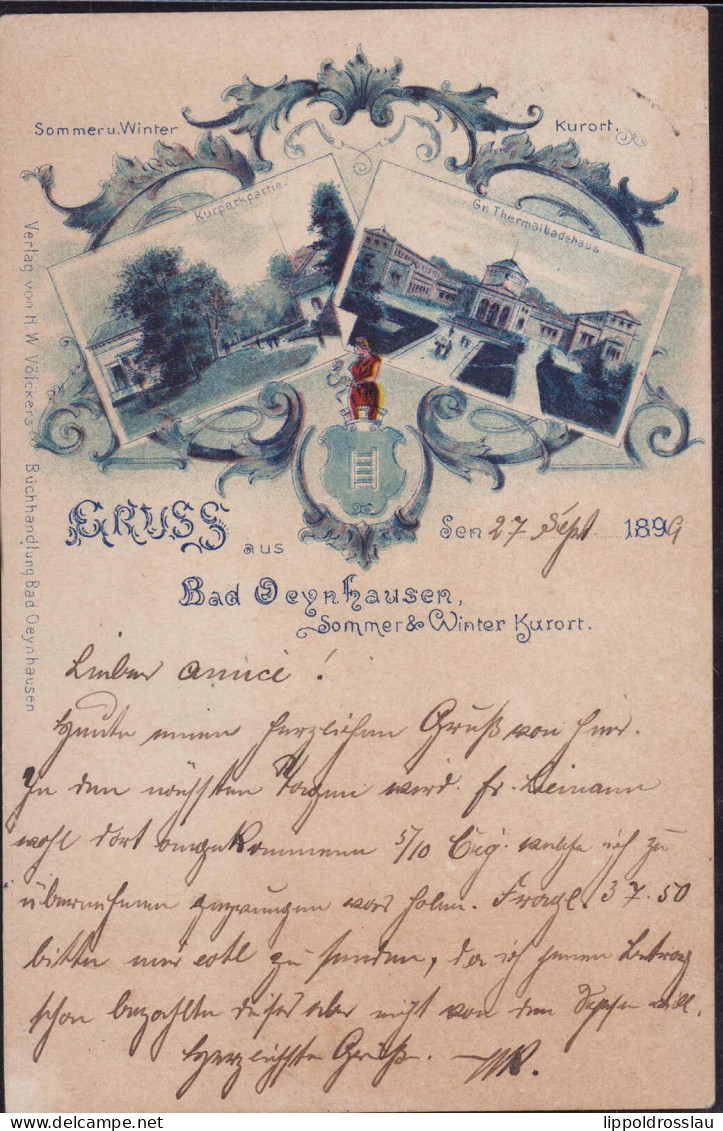 Sommer u. Winter
Kurort.
Kurparkpartie.
Gr. Thermalbadehaus
Verlag von H.W. Völckers Buchhandlung Bad Oeynhausen
GRUSS aus
Den 27 Sept 1899
Bad Oeynhausen,
Sommer & Winter Kurort.
Lieber Amice!
Heute einen herzlichen Gruß von hier.
In den nächsten Tagen wird Fr.
wohl dort angekommen 5/10 Cig. welche ich zu
übernehmen gezwungen war 37.50
bitte mir evtl zu senden, da ich jenen Betrag
schon bezahlte dieses aber nicht von dem will.
Herzlichste Grüße.
© www.delcampe.net
lippoldrosslau